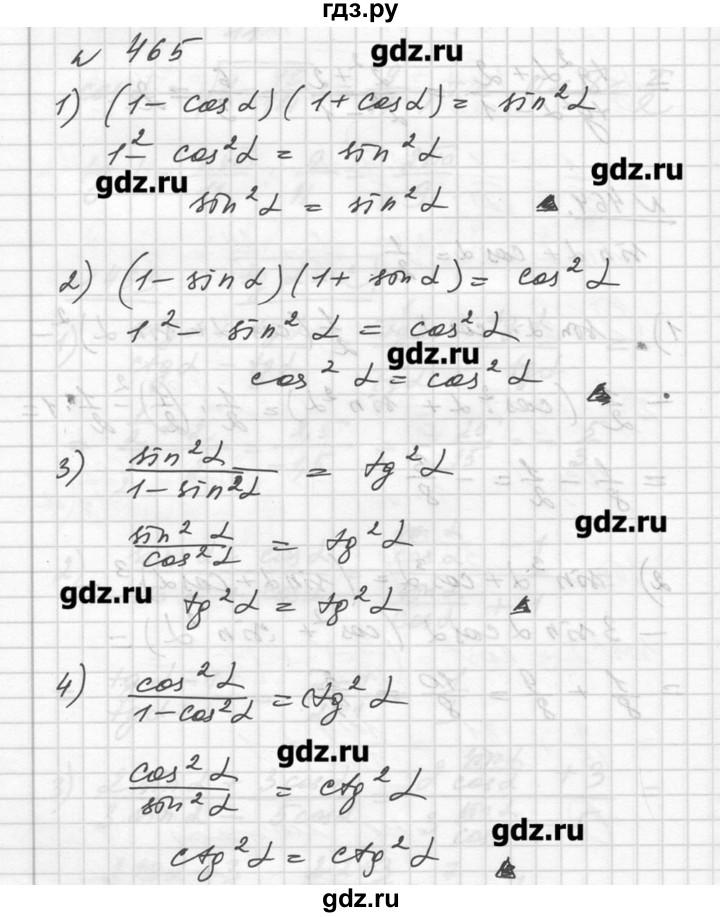 гдз.ру
№ 465
gdz.ru
1) (1 - cos α)(1 + cos α) = sin² α
1² - cos² α = sin² α
gdz.ru
gdz.ru
sin² α = sin² α ▲
2) (1 - sin α)(1 + sin α) = cos² α
1² - sin² α = cos² α
gdz.ru
cos² α = cos² α ▲
3) sin² α / 1 - sin² α = tg² α
gdz.ru
sin² α / cos² α = tg² α
gdz.ru
tg² α = tg² α ▲
4) cos² α / 1 - cos² α = ctg² α
gdz.ru
cos² α / sin² α = ctg² α
gdz.ru
ctg² α = ctg² α ▲
gdz.ru